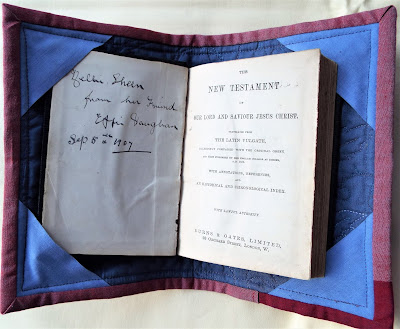 from her Friend
Effie Vaughan
Sep 6th 1907
THE
NEW TESTAMENT
OF
OUR LORD AND SAVIOUR JESUS CHRIST.
TRANSLATED FROM
THE LATIN VULGATE,
DILIGENTLY COMPARED WITH THE ORIGINAL GREEK,
WITH ANNOTATIONS, REFERENCES,
AND
AN HISTORICAL AND CHRONOLOGICAL INDEX.
BURNS & OATES, LIMITED,
28 ORCHARD STREET, LONDON, W.